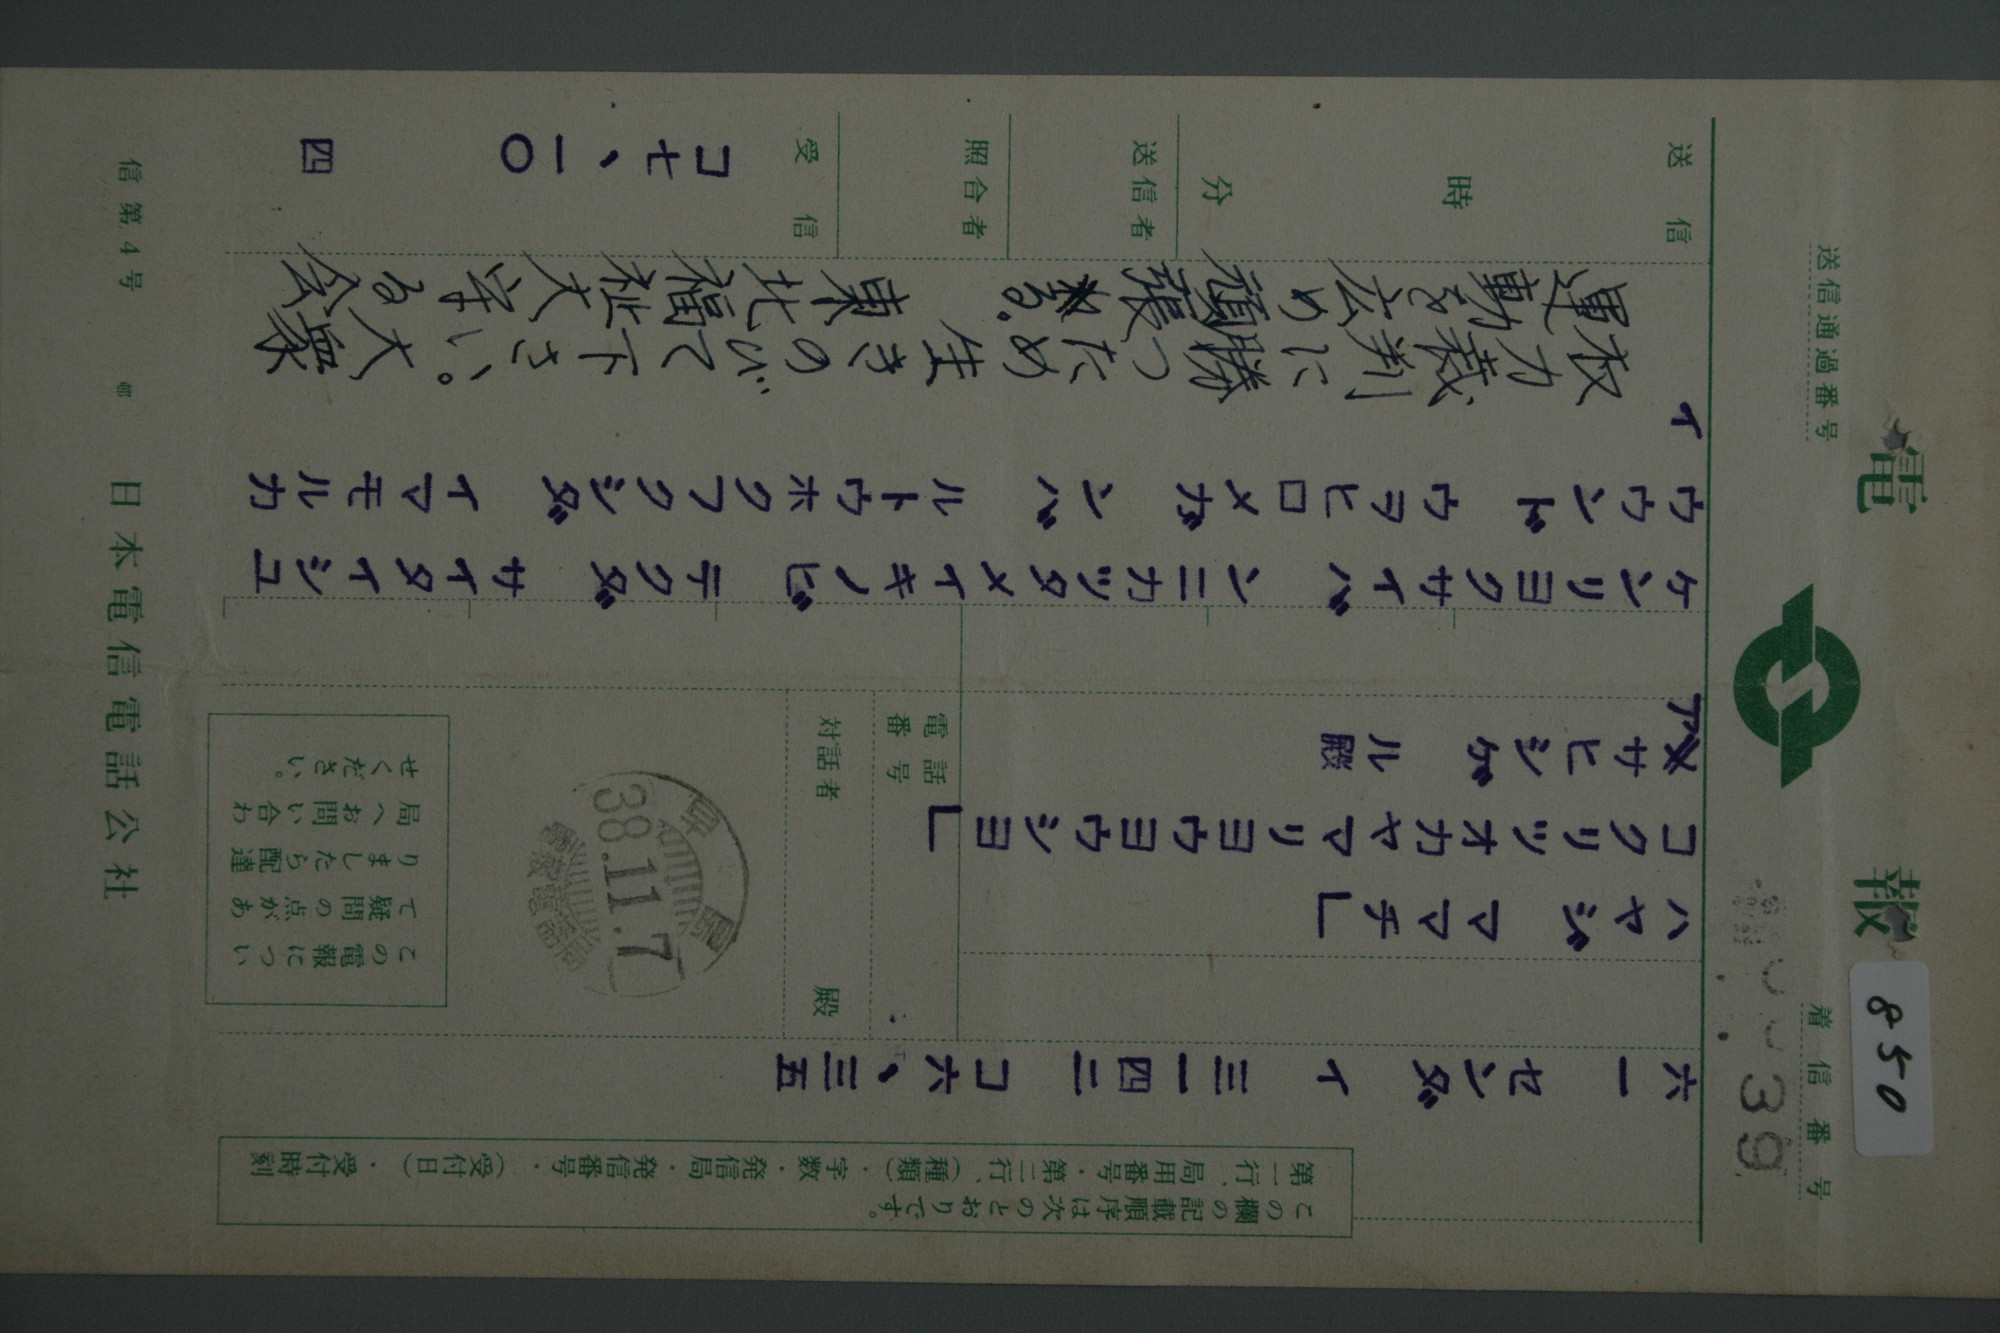 電報
850
送信通過番号
着信番号
39
この欄の記載順序は次のとおりです。
第一行、局用番号・第二行、(種類)・字数・発信局・発信番号・(受付日)・受付時刻
六一 センダイ 三一四二 コ六、三五
ハヤジママチ」
コクリツオカヤマリヨウヨウシヨ」
アサヒシゲル殿
電話番号
対話者 殿
早島
38.11.7
この電報につい
て疑問の点があ
りましたら配達
局へお問い合わ
せください。
ケンリヨクサイバンニカツタメイキノビテクダサイタイシユ
ウウンドウヲヒロメガンバルトウホクフクシダイマモルカ
イ
权力裁判に勝つため生きのびて下さい。大衆
運動を広め頑張る。東北福祉大守る会
送信
時
分
送信者
照合者
受信
コ七、一〇
四
信第4号
日本電信電話公社